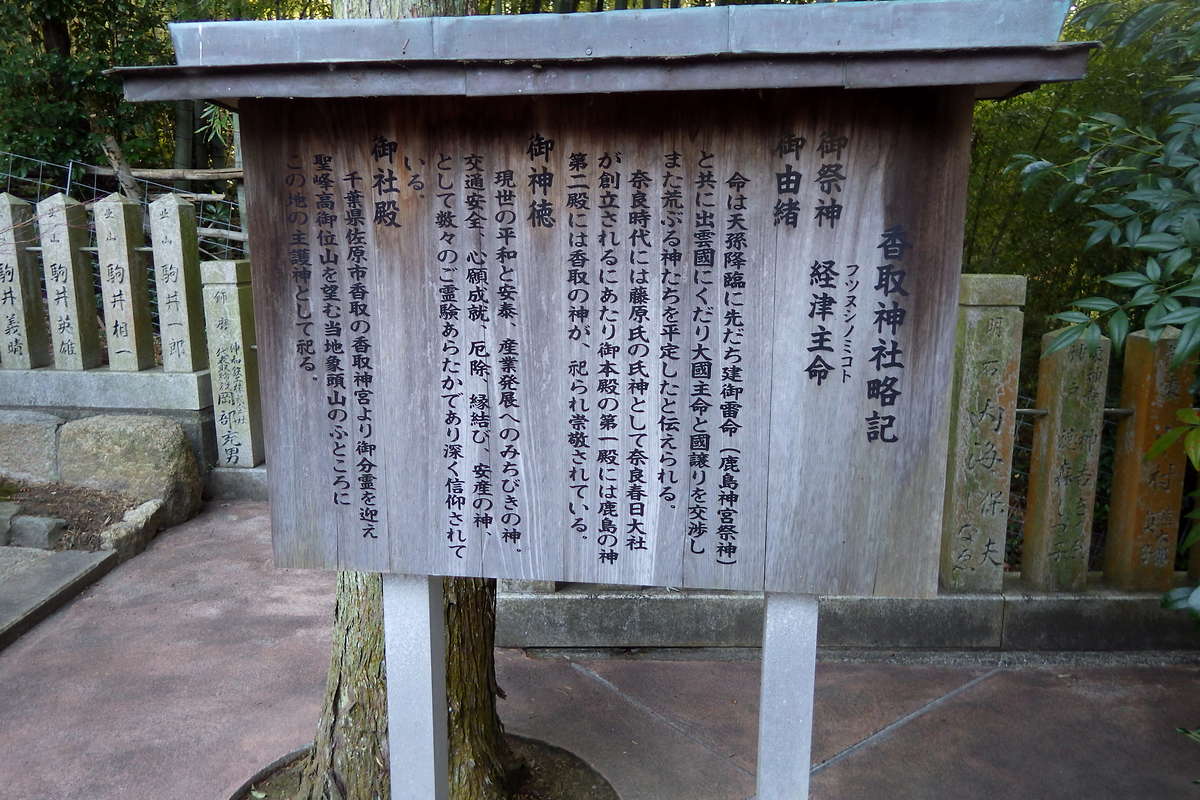 香取神社略記
御祭神
フツヌシノミコト
経津主命
御由緒
命は天孫降臨に先だち建御雷命(鹿島神宮祭神)
と共に出雲國にくだり大國主命と國譲りを交渉し
また荒ぶる神たちを平定したと伝えられる。
奈良時代には藤原氏の氏神として奈良春日大社
が創立されるにあたり御本殿の第一殿には鹿島の神
第二殿には香取の神が、祀られ崇敬されている。
御神徳
現世の平和と安泰、産業発展へのみちびきの神。
交通安全、心願成就、厄除、縁結び、安産の神、
として数々のご霊験あらたかであり深く信仰されて
いる。
御社殿
千葉県佐原市香取の香取神宮より御分霊を迎え
聖峰高御位山を望む当地象頭山のふところに
この地の主護神として祀る。
駒井義晴
駒井英雄
駒井相一
駒井一郎
岡部充男
明石
内海保夫
村